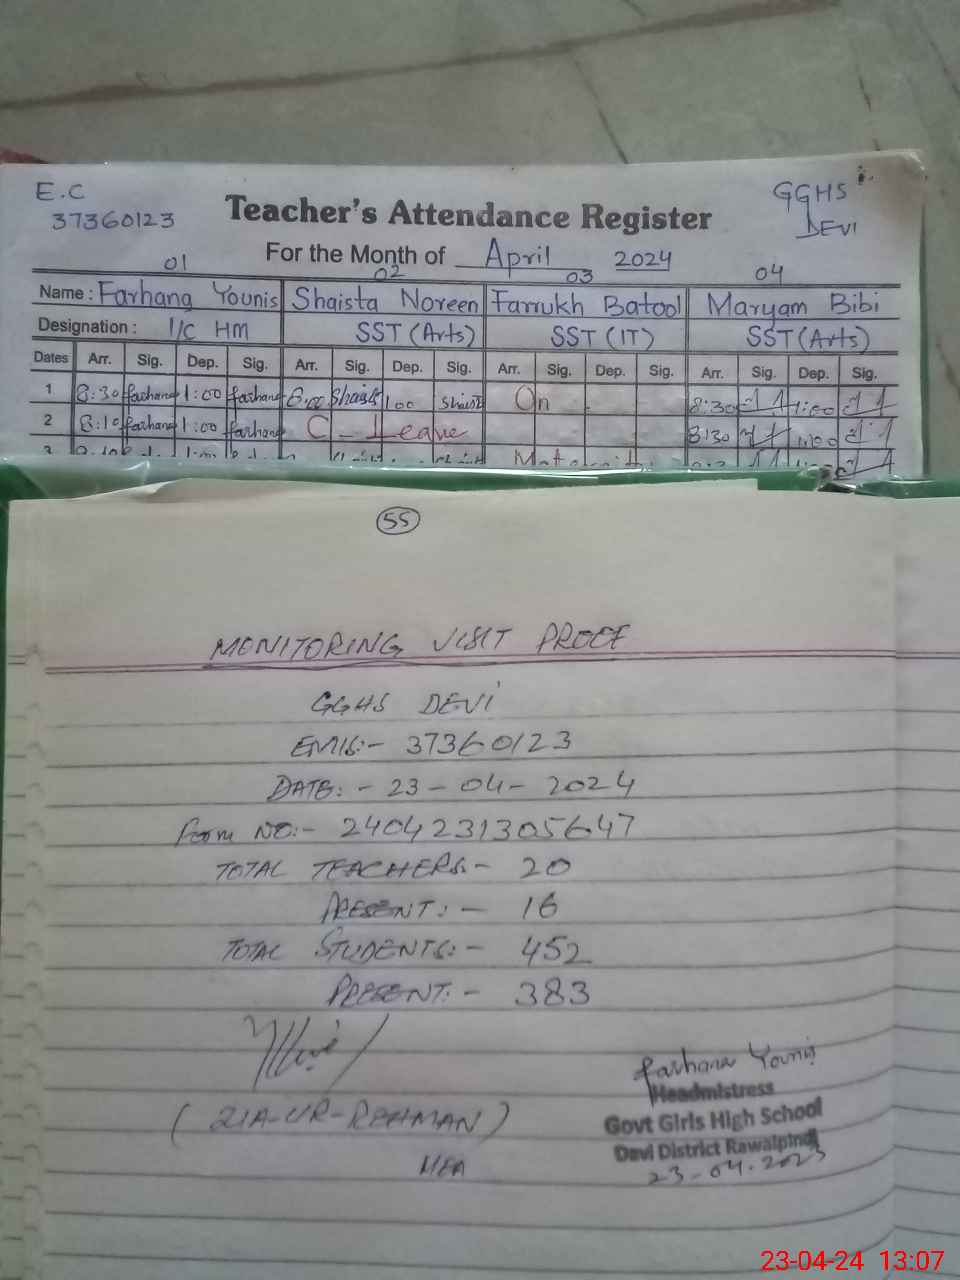 E.C
37360123
GGHS
DEVI
Teacher's Attendance Register
For the Month of April 2024
01 02 03 04
Name: Farhana Younis Shaista Noreen Farrukh Batool Maryam Bibi
Designation: I/C HM SST (Arts) SST (IT) SST (Arts)
Dates Arr. Sig. Dep. Sig. Arr. Sig. Dep. Sig. Arr. Sig. Dep. Sig. Arr. Sig. Dep. Sig.
1 8:30 farhana 1:00 farhana 8:00 Shaista 1:00 Shaista On 8:30 1:00
2 8:10 farhana 1:00 farhana C - Leave 8:30 1:00
3
55
MONITORING VISIT PROOF
GGHS DEVI
EMIS:- 37360123
DATE:- 23-04-2024
Form NO:- 2404231305647
TOTAL TEACHERS:- 20
PRESENT:- 16
TOTAL STUDENTS:- 452
PRESENT:- 383
(ZIA-UR-REHMAN)
MEA
Farhana Younis
Headmistress
Govt Girls High School
Devi District Rawalpindi
23-04-2023
23-04-24 13:07